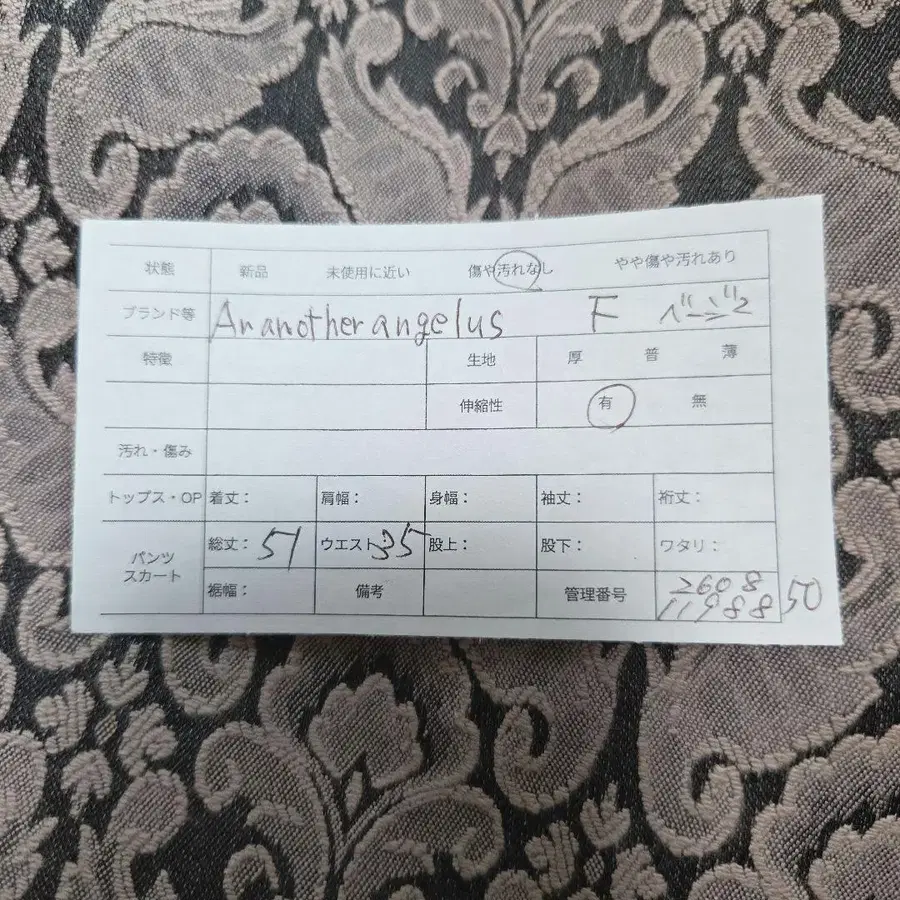 状態 新品 未使用に近い 傷や汚れなし やや傷や汚れあり
ブランド等 An another angelus F ベージュ
特徴 生地 厚 普 薄
伸縮性 有 無
汚れ・傷み
トップス・OP 着丈: 肩幅: 身幅: 袖丈: 裄丈:
パンツ スカート 総丈: 51 ウエスト 35 股上: 股下: ワタリ:
裾幅: 備考 管理番号 2608
11988 50